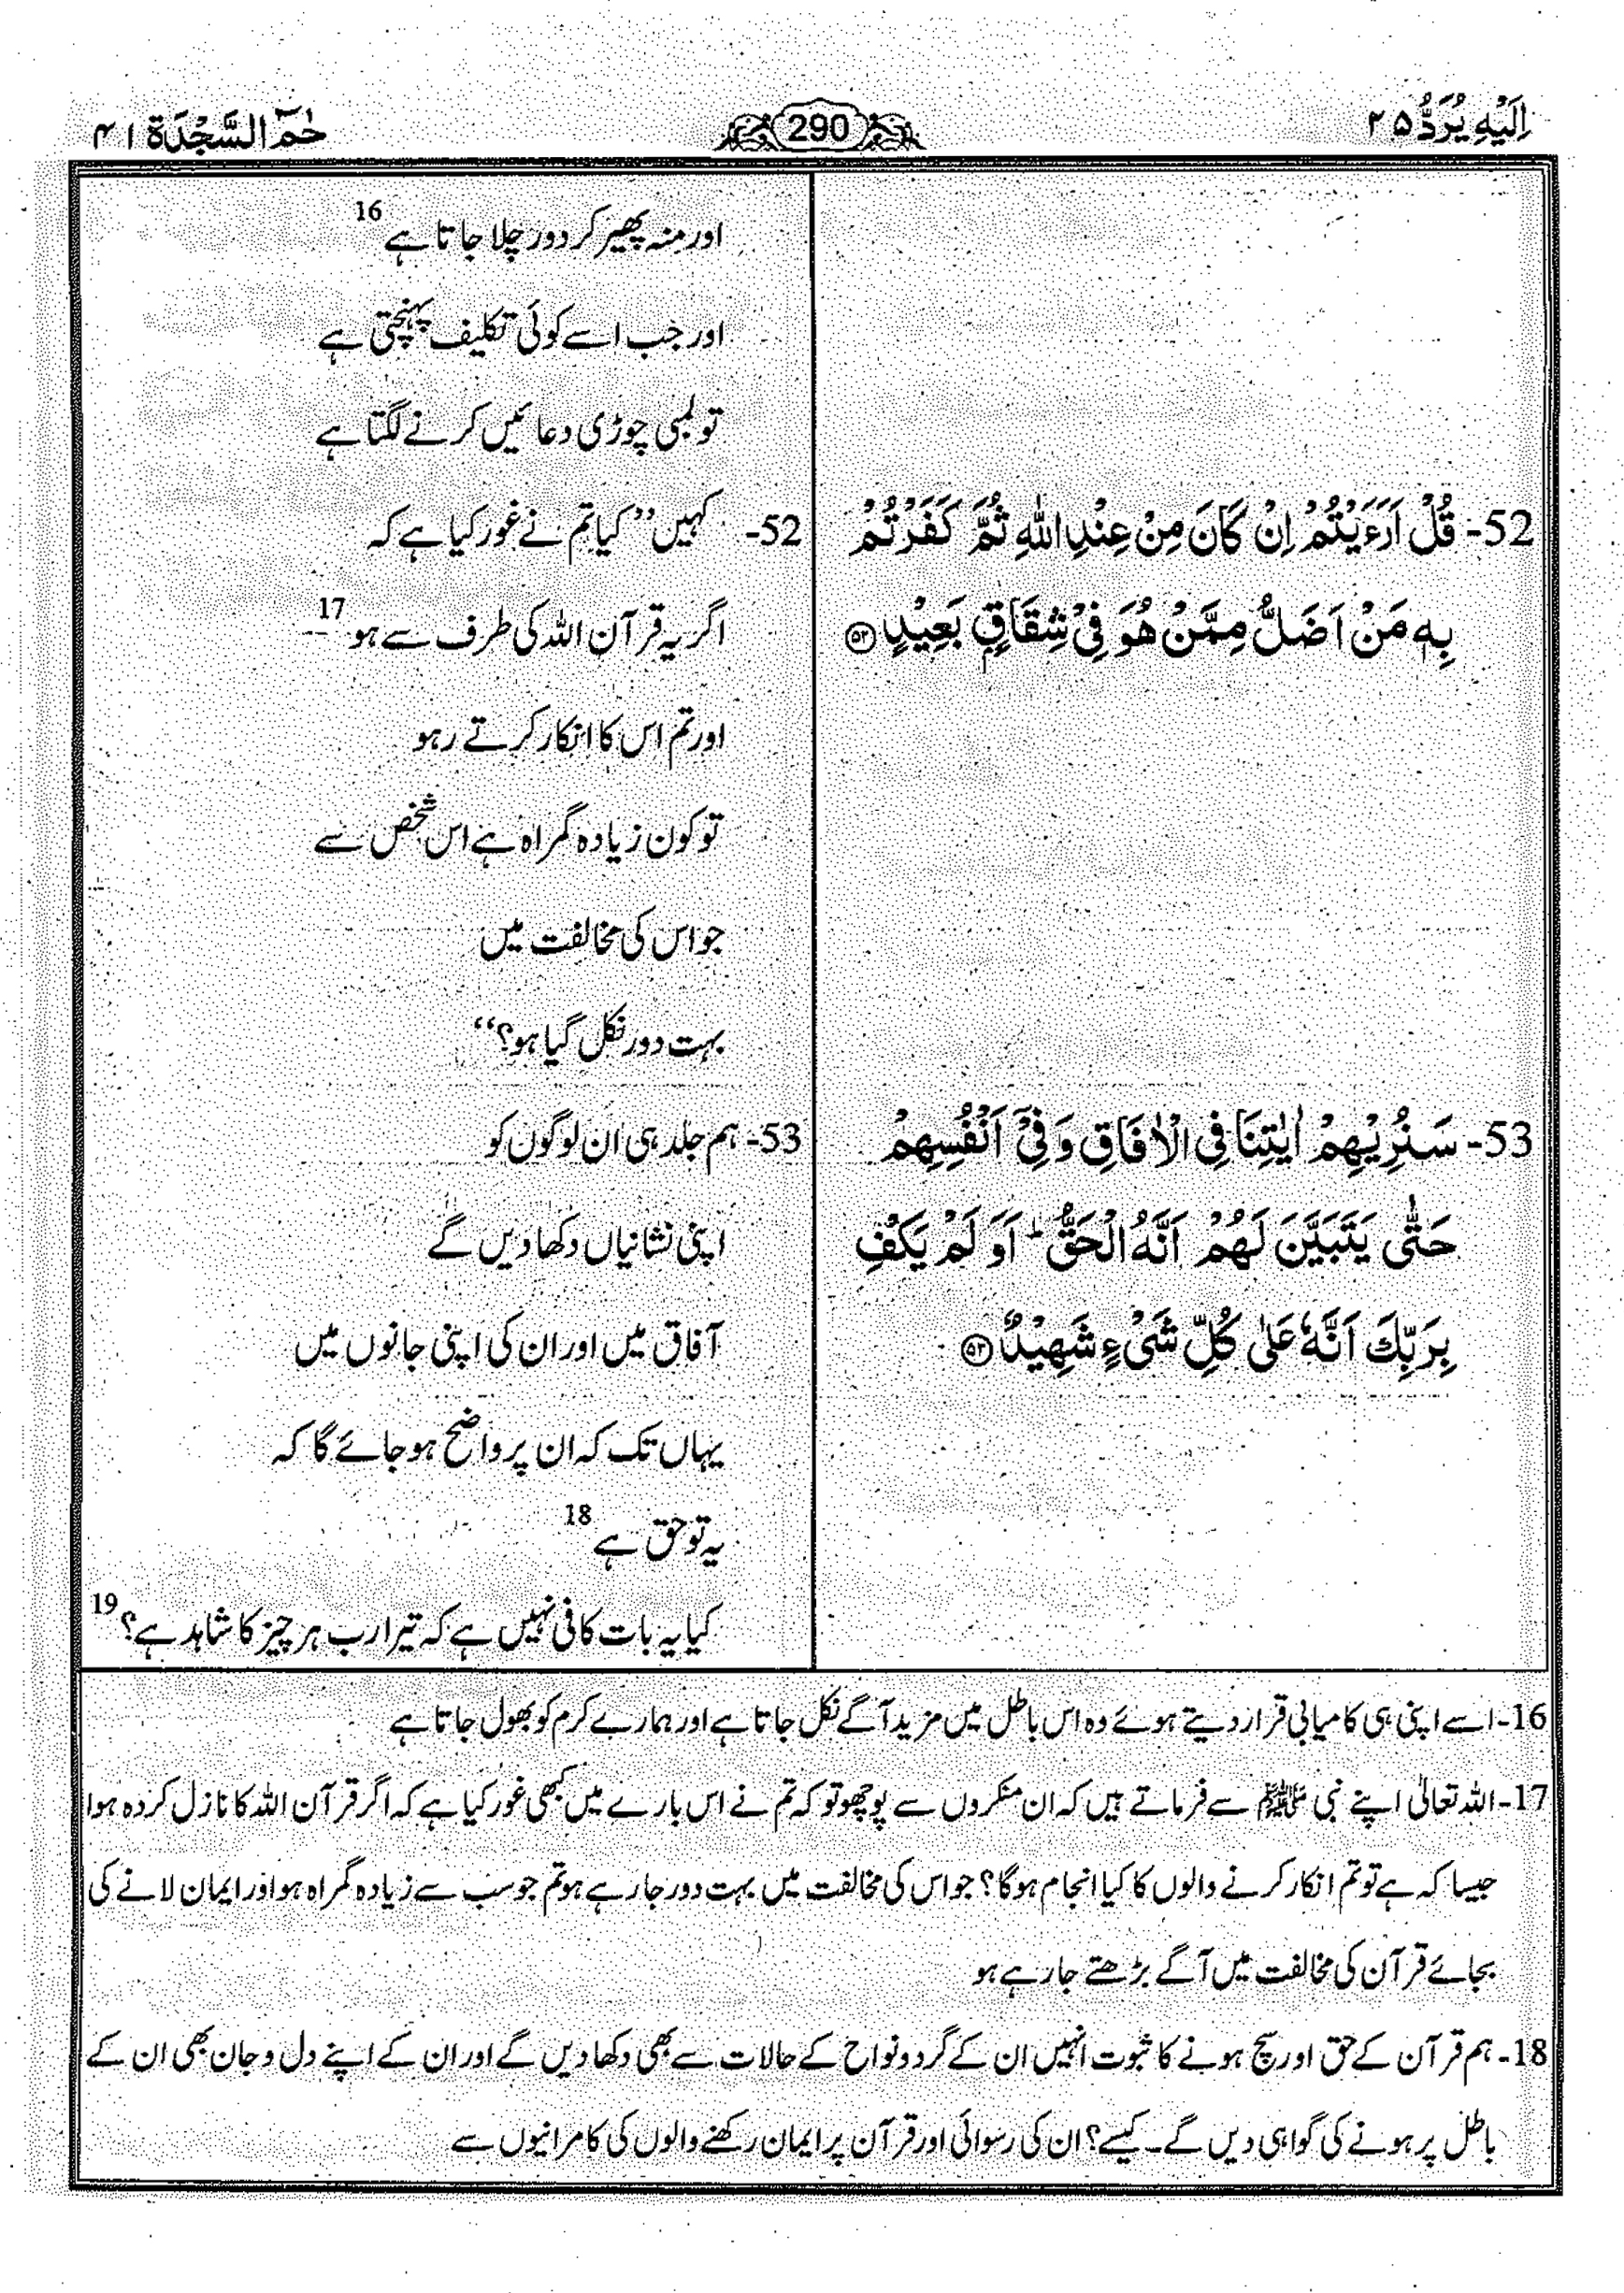 اِلَیْهِ یُرَدُّ ۲۵
290
حٰمٓ السَّجْدَة ۴۱
52- قُلْ اَرَءَیْتُمْ اِنْ كَانَ مِنْ عِنْدِ اللّٰهِ ثُمَّ كَفَرْتُمْ
بِهٖ مَنْ اَضَلُّ مِمَّنْ هُوَ فِیْ شِقَاقٍۭ بَعِیْدٍ ۝۵۲
53- سَنُرِیْهِمْ اٰیٰتِنَا فِی الْاٰفَاقِ وَ فِیْۤ اَنْفُسِهِمْ
حَتّٰی یَتَبَیَّنَ لَهُمْ اَنَّهُ الْحَقُّ ؕ اَوَ لَمْ یَكْفِ
بِرَبِّكَ اَنَّهٗ عَلٰی كُلِّ شَیْءٍ شَهِیْدٌ ۝۵۳
اور منہ پھیر کر دور چلا جاتا ہے 16
اور جب اسے کوئی تکلیف پہنچتی ہے
تو لمبی چوڑی دعائیں کرنے لگتا ہے
52- کہیں ’’کیا تم نے غور کیا ہے کہ
اگر یہ قرآن اللہ کی طرف سے ہو 17
اور تم اس کا انکار کرتے رہو
تو کون زیادہ گمراہ ہے اس شخص سے
جو اس کی مخالفت میں
بہت دور نکل گیا ہو؟‘‘
53- ہم جلد ہی ان لوگوں کو
اپنی نشانیاں دکھا دیں گے
آفاق میں اور ان کی اپنی جانوں میں
یہاں تک کہ ان پر واضح ہو جائے گا کہ
یہ تو حق ہے 18
کیا یہ بات کافی نہیں ہے کہ تیرا رب ہر چیز کا شاہد ہے؟ 19
16- اسے اپنی ہی کامیابی قرار دیتے ہوئے وہ اس باطل میں مزید آگے نکل جاتا ہے اور ہمارے کرم کو بھول جاتا ہے
17- اللہ تعالٰی اپنے نبی ﷺ سے فرماتے ہیں کہ ان منکروں سے پوچھو تو کہ تم نے اس بارے میں کبھی غور کیا ہے کہ اگر قرآن اللہ کا نازل کردہ ہوا
جیسا کہ ہے تو تم انکار کرنے والوں کا کیا انجام ہوگا؟ جو اس کی مخالفت میں بہت دور جا رہے ہو تم جو سب سے زیادہ گمراہ ہو اور ایمان لانے کی
بجائے قرآن کی مخالفت میں آگے بڑھتے جا رہے ہو
18- ہم قرآن کے حق اور سچ ہونے کا ثبوت انہیں ان کے گرد و نواح کے حالات سے بھی دکھا دیں گے اور ان کے اپنے دل و جان بھی ان کے
باطل پر ہونے کی گواہی دیں گے۔ کیسے؟ ان کی رسوائی اور قرآن پر ایمان رکھنے والوں کی کامرانیوں سے